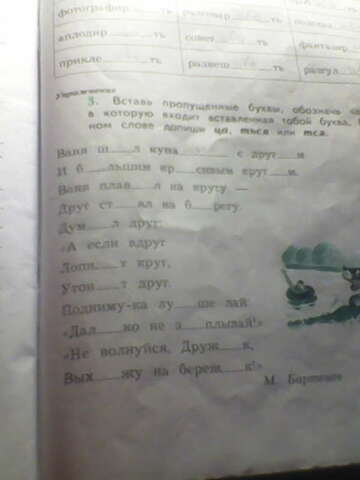 фотографир ть разговар ть
аплодир ть совет ть фантазир
прикле ть развеш ть разгул
Упражнение
3. Вставь пропущенные буквы, обозначь ча
в которую входит вставленная тобой буква.
ном слове допиши ца, ться или тся.
Ваня ш__л купа____ с друг__м
И б__льшим кр__сивым круг__м.
Ваня плав__л на кругу —
Друг ст__ял на б__регу.
Дум__л друг:
«А если вдруг
Лопн__т круг,
Утон__т друг.
Подниму-ка лу__ше лай:
«Дал__ко не з__плывай!»
«Не волнуйся, Друж__к,
Вых__жу на береж__к!»
М.